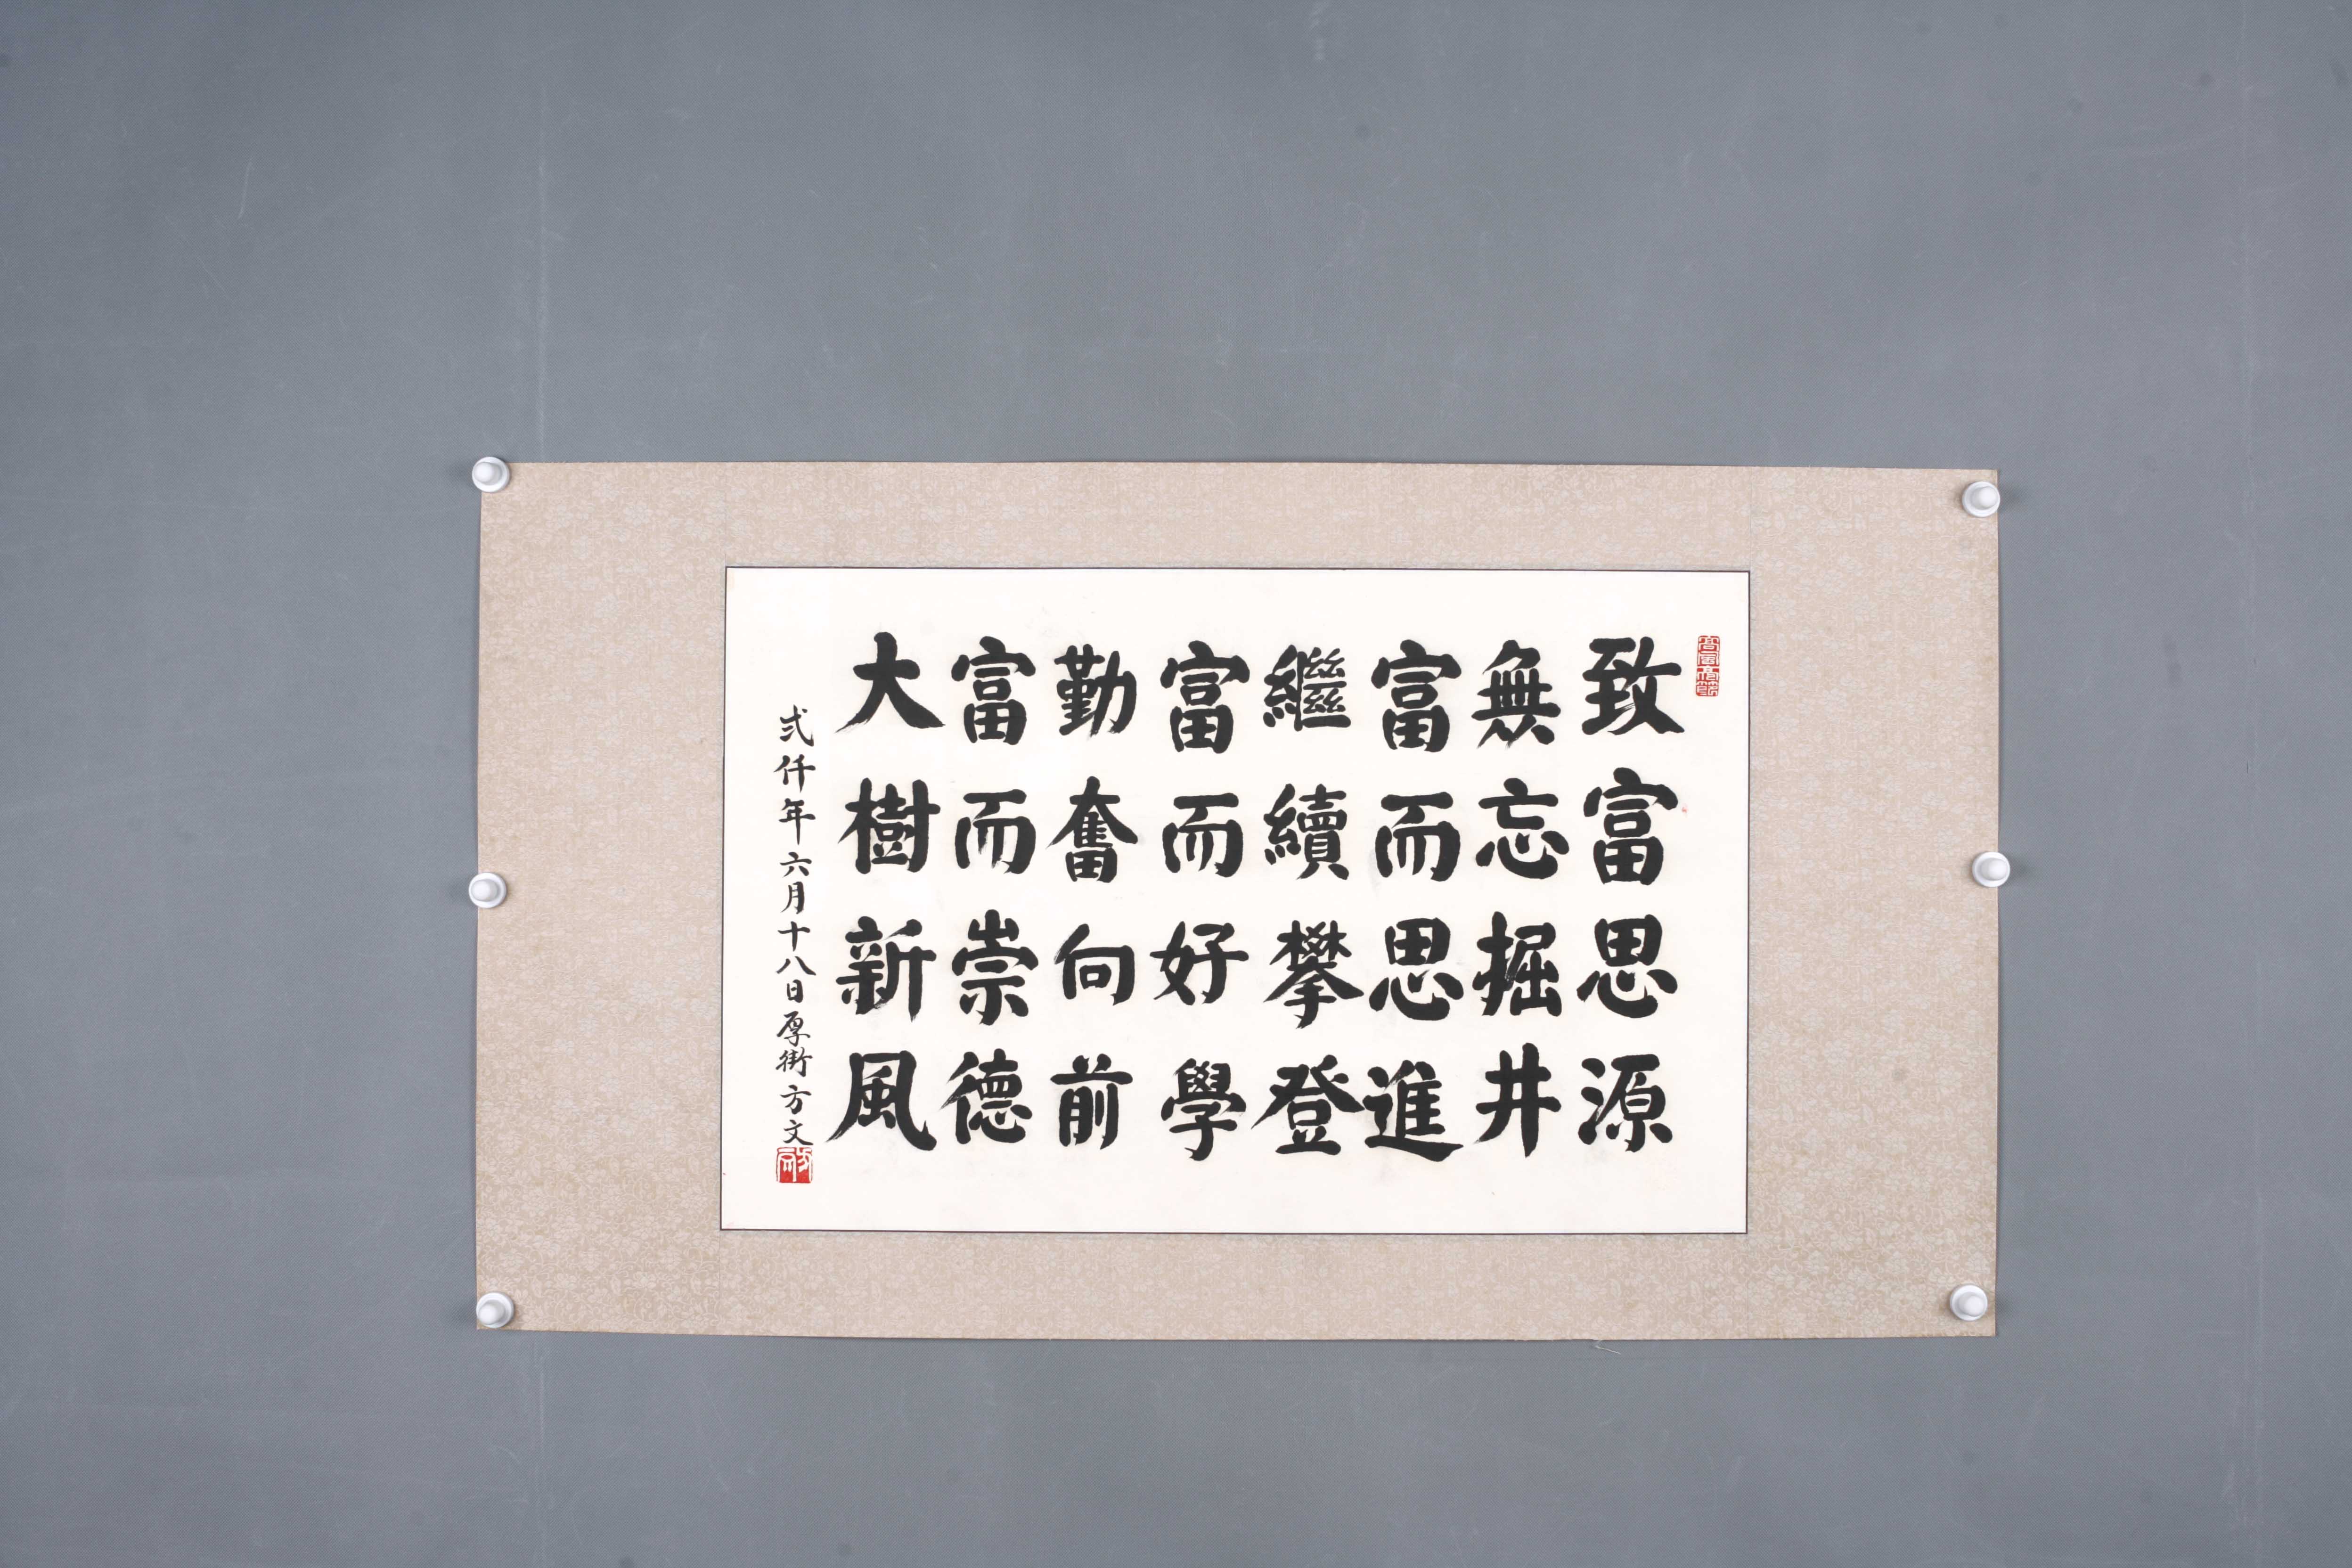 致富思源
無忘掘井
富而思進
繼續攀登
富而好學
勤奮向前
富而崇德
大樹新風
弍仟年六月十八日厚街方文